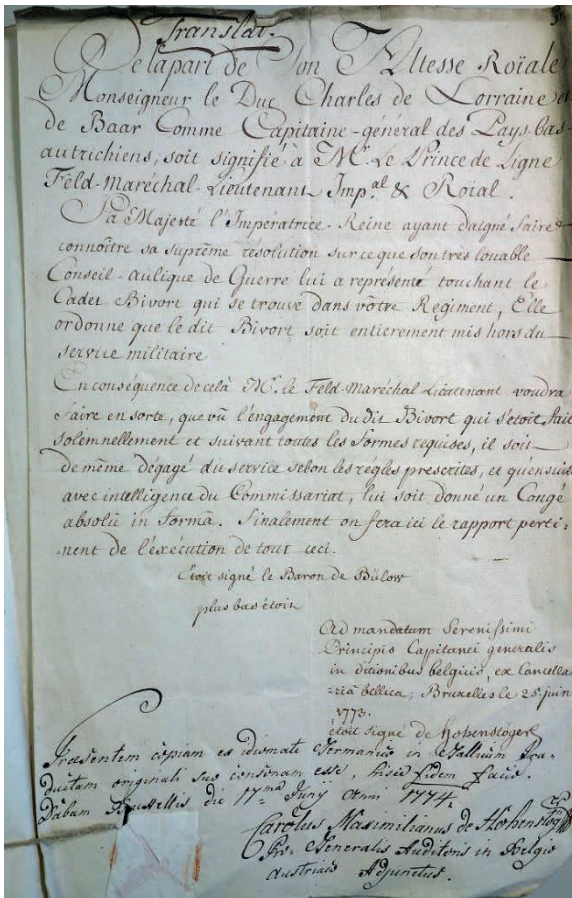 Translat.
De la part de Son Altesse Roïale
Monseigneur le Duc Charles de Lorraine et
de Baar Comme Capitaine-général des Pays-bas
autrichiens, soit signifié à Mr. Le Prince de Ligne
Feld-Maréchal-Lieutenant Imp.al & Roïal.
Sa Majesté l'Impératrice-Reine ayant daigné faire
connoître sa suprême résolution sur ce que son très louable
Conseil-aulique de Guerre lui a représenté touchant le
Cadet Bivort qui se trouve dans vôtre Regiment, Elle
ordonne que le dit Bivort soit entierement mis hors du
service militaire
En conséquence de celà Mr. le Feld-Maréchal Lieutenant voudra
faire en sorte, que vû l'engagement du dit Bivort qui s'etoit fait
solemnellement et suivant toutes les formes requises, il soit
de même dégagé du service selon les règles prescrites, et qu'ensuite
avec intelligence du Commissariat, lui soit donné un Congé
absolû in formâ. Finalement on fera ici le rapport perti=
=nent de l'éxécution de tout ceci.
Etoit signé le Baron de Bülow
plus bas étoit
Ad mandatum Serenissimi
Principis Capitanei generalis
in ditionibus belgicis, ex Cancella
=riâ bellica, Bruxelles le 25 juin
1773.
étoit signé de Hohenstöger
Præsentem copiam ex idiomate Germanico in Gallicum tra=
ductam originali suo consonam esse, hisce fidem facio.
Dabam Bruxellis die 17ma Junÿ anni 1774.
Carolus Maximilianus de Hohenstöger
Pro-Generalis Auditoris in Belgio
austriaco Adjunctus.